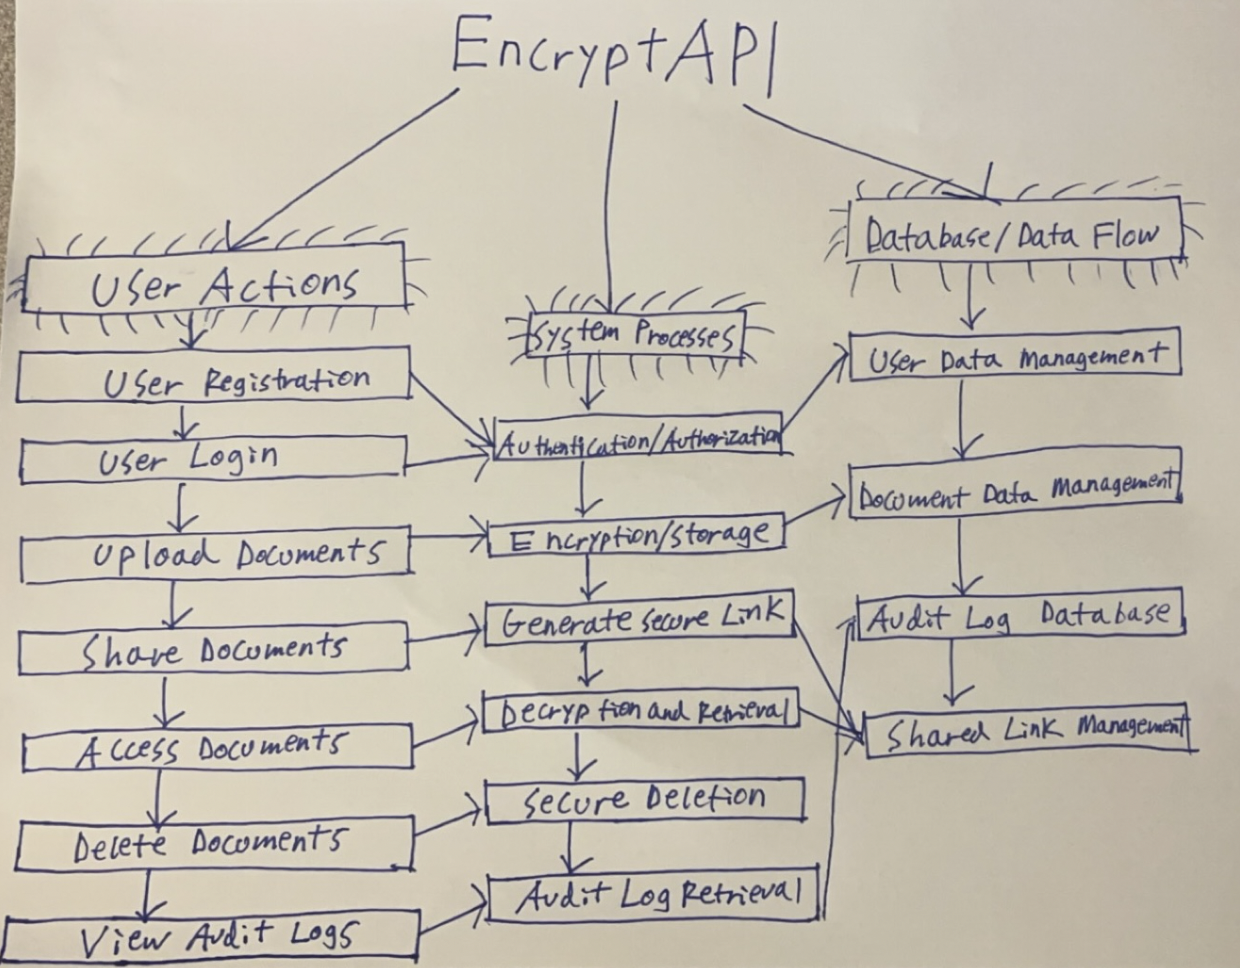 EncryptAPI
User Actions
User Registration
User Login
Upload Documents
Share Documents
Access Documents
Delete Documents
View Audit Logs
System Processes
Authentication/Authorization
Encryption/Storage
Generate Secure Link
Decryption and Retrieval
Secure Deletion
Audit Log Retrieval
Database/Data Flow
User Data Management
Document Data Management
Audit Log Database
Shared Link Management